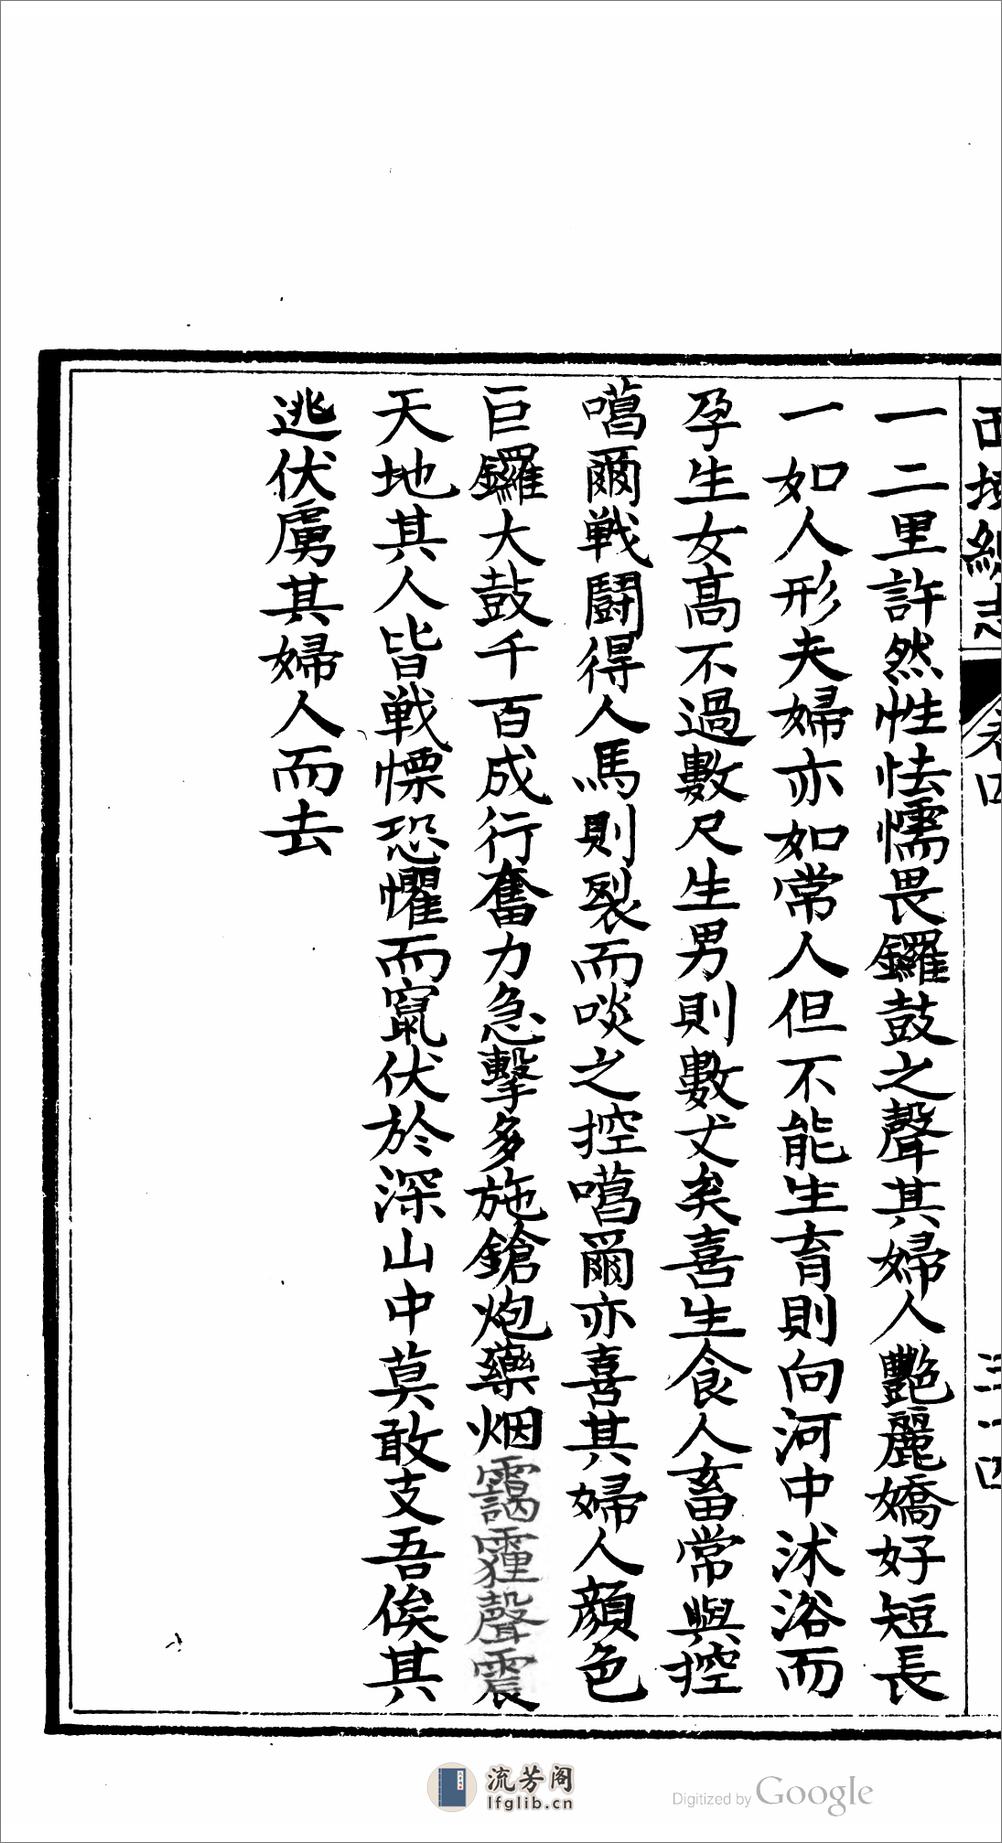 一二里許然性怯懦畏鑼鼓之聲其婦人艷麗嬌好短長
一如人形夫婦亦如常人但不能生育則向河中沭浴而
孕生女高不過數尺生男則數丈矣喜生食人畜常與控
噶爾戰鬪得人馬則裂而啖之控噶爾亦喜其婦人顏色
巨鑼大鼓千百成行奮力急擊多施鎗炮藥烟靄霾聲震
天地其人皆戰慄恐懼而竄伏於深山中莫敢支吾俟其
逃伏虜其婦人而去
流芳阁
lfglib.cn
Digitized by Google